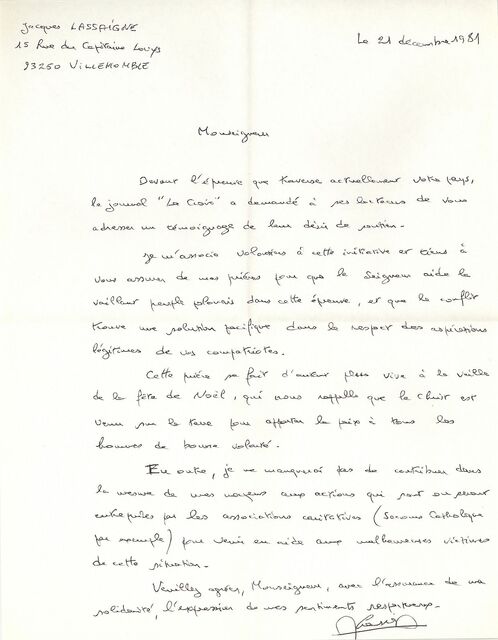 Jacques LASSAIGNE
15 Rue du Capitaine Louys
93250 VILLEMOMBLE
Le 21 décembre 1981
Monseigneur
Devant l'épreuve que traverse actuellement votre pays,
le journal "La Croix" a demandé à ses lecteurs de vous
adresser un témoignage de leur désir de soutien.
Je m'associe volontiers à cette initiative et tiens à
vous assurer de mes prières pour que le Seigneur aide le
vaillant peuple polonais dans cette épreuve, et que le conflit
trouve une solution pacifique dans le respect des aspirations
légitimes de vos compatriotes.
Cette prière se fait d'autant plus vive à la veille
de la fête de Noël, qui nous rappelle que le Christ est
venu sur la terre pour apporter la paix à tous les
hommes de bonne volonté.
En outre, je ne manquerai pas de contribuer dans
la mesure de mes moyens aux actions qui sont ou seront
entreprises par les associations caritatives (Secours Catholique
par exemple) pour venir en aide aux malheureuses victimes
de cette situation.
Veuillez agréer, Monseigneur, avec l'assurance de ma
solidarité, l'expression de mes sentiments respectueux.